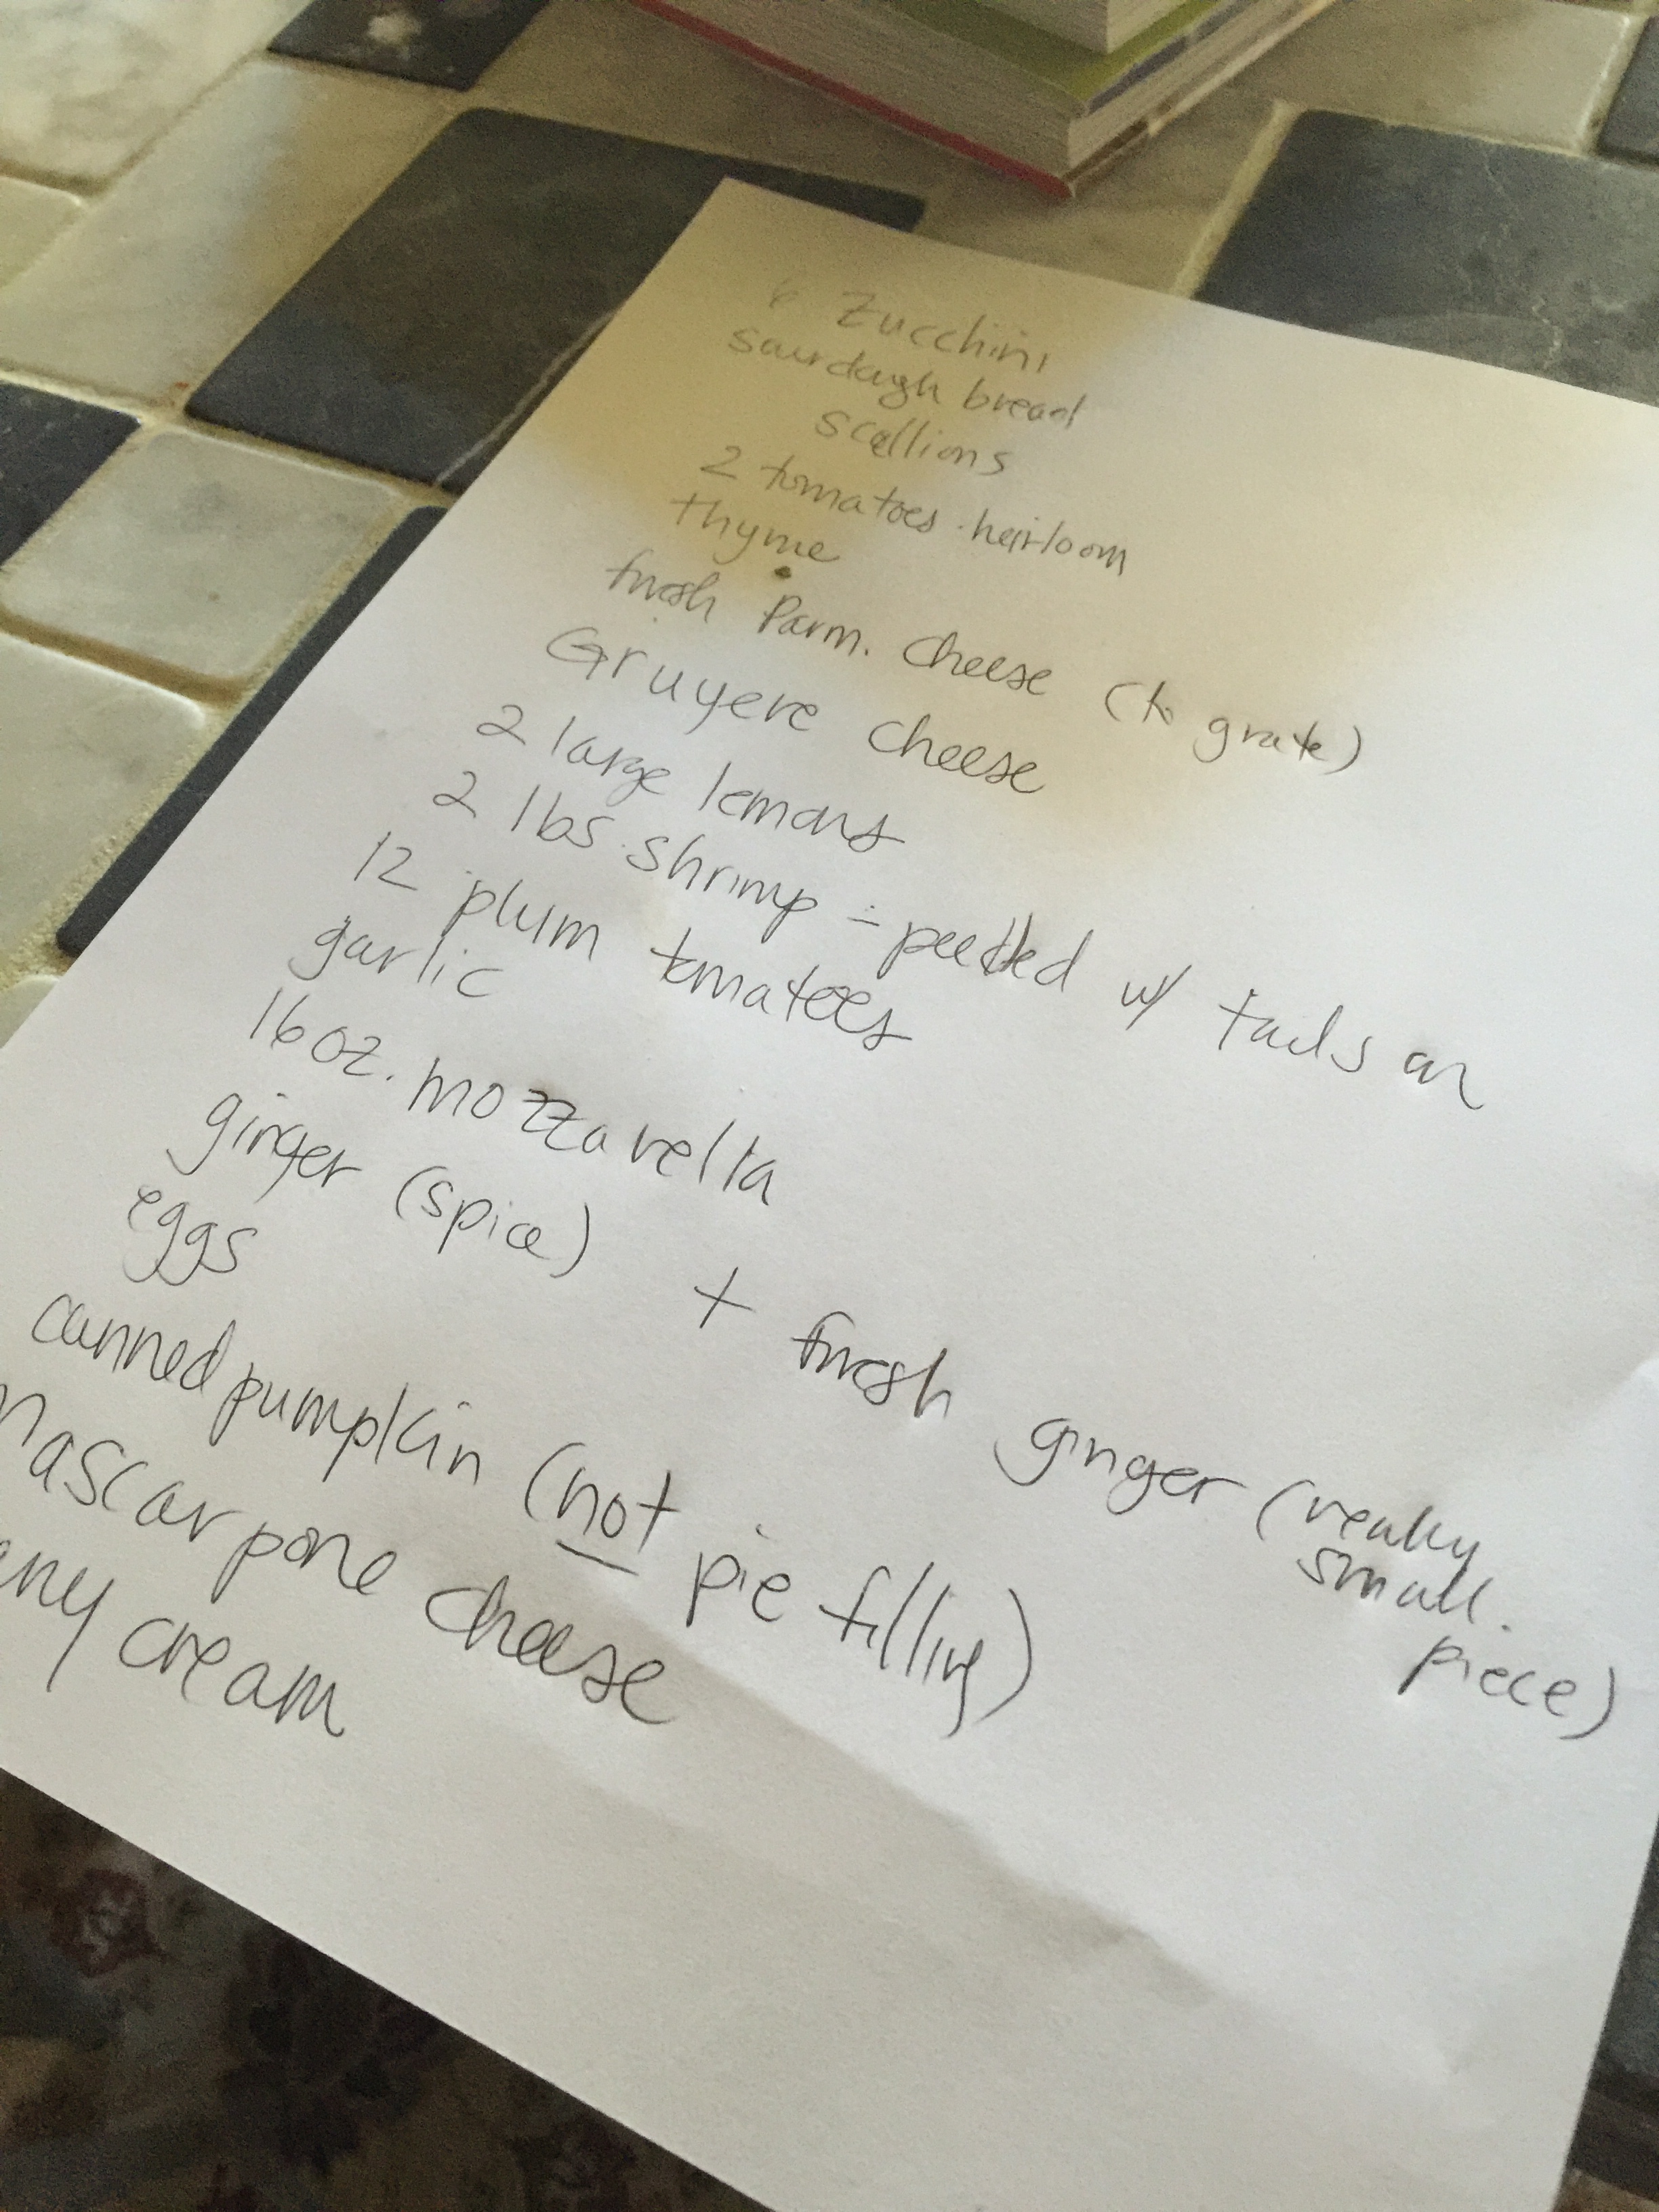 6 Zucchini
sourdough bread
scallions
2 tomatoes · heirloom
thyme
fresh Parm. cheese (to grate)
Gruyere cheese
2 large lemons
2 lbs. shrimp - peeled w/ tails on
12 plum tomatoes
garlic
16 oz. mozzarella
ginger (spice) + fresh ginger (really small piece)
eggs
canned pumpkin (not pie filling)
mascarpone cheese
cream